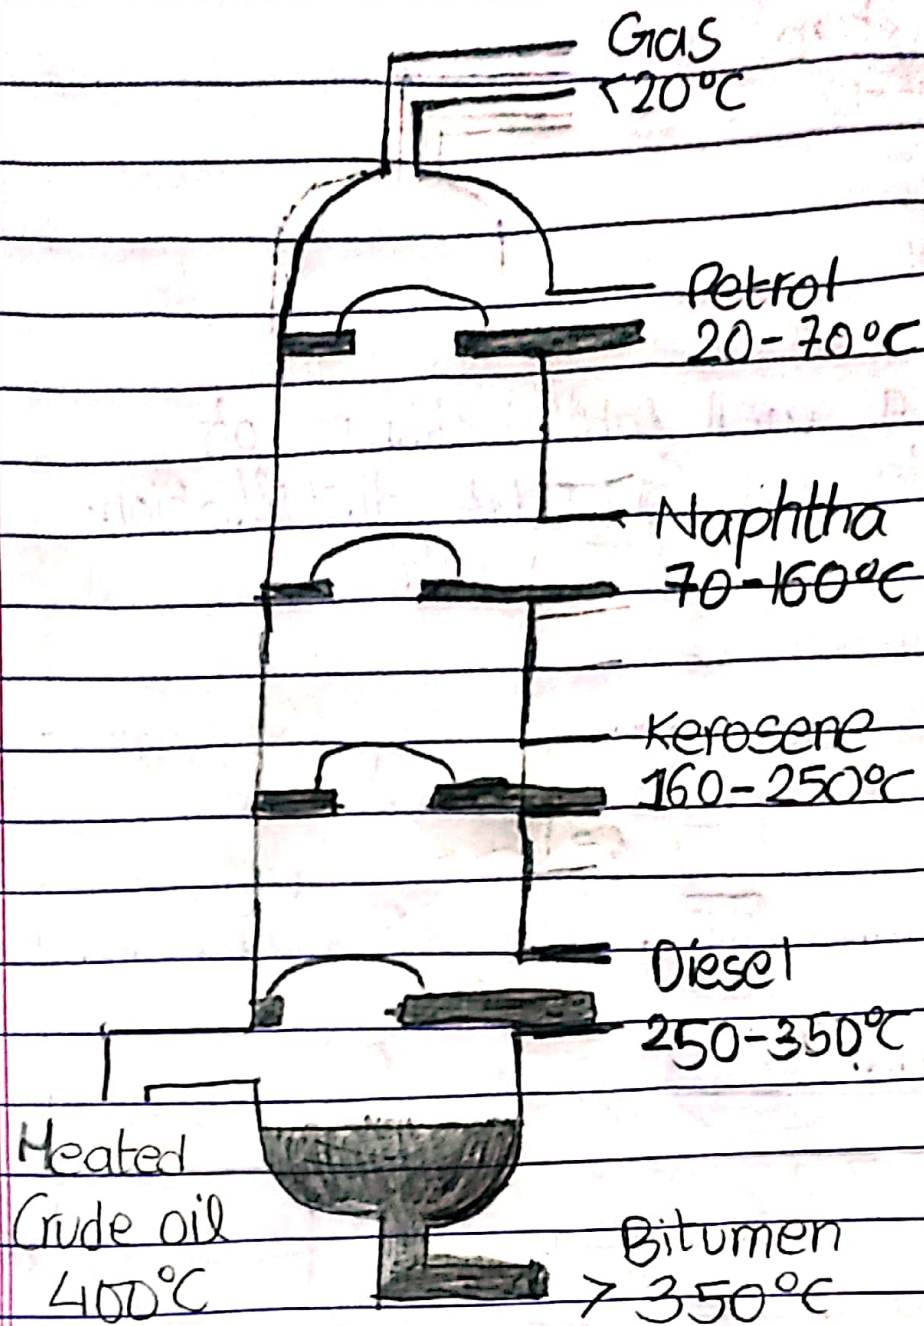 Gas
<20°C
Petrol
20-70°C
Naphtha
70-160°C
Kerosene
160-250°C
Diesel
250-350°C
Heated
Crude oil
400°C
Bitumen
> 350°C